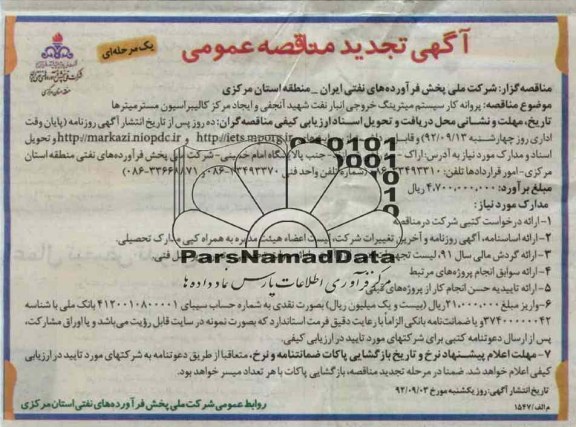 آگهی تجدید مناقصه عمومی
یک مرحله‌ای
مناقصه‌گزار: شرکت ملی پخش فرآورده‌های نفتی ایران _ منطقه استان مرکزی
موضوع مناقصه: پروانه کار سیستم میترینگ خروجی انبار نفت شهید آنجفی و ایجاد مرکز کالیبراسیون مسترمیترها
تاریخ، مهلت و نشانی محل دریافت و تحویل اسناد ارزیابی کیفی مناقصه‌گران: ده روز پس از تاریخ انتشار آگهی روزنامه (پایان وقت
اداری روز چهارشنبه ۹۲/۰۹/۱۳) و http://iets.mporg.ir http://markazi.niopdc.ir و تحویل
اسناد و مدارک مورد نیاز به آدرس: اراک جنب پالایشگاه امام خمینی- شرکت ملی پخش فرآورده‌های نفتی منطقه استان
مرکزی- امور قراردادها تلفن: شماره تلفن واحد فنی
مبلغ برآورد: ۴،۷۰۰،۰۰۰،۰۰۰ ریال
مدارک مورد نیاز:
۱- ارائه درخواست کتبی شرکت در مناقصه
۲- ارائه اساسنامه، آگهی روزنامه و آخرین تغییرات شرکت، لیست اعضاء هیئت مدیره به همراه کپی مدارک تحصیلی.
۳- ارائه گردش مالی سال ۹۱، لیست فنی.
۴- ارائه سوابق انجام پروژه‌های مرتبط
۵- ارائه تاییدیه حسن انجام کار از پروژه‌های قبلی
۶- واریز مبلغ ۲۱۰۰۰،۰۰۰ ریال (بیست و یک میلیون ریال) بصورت نقدی به شماره حساب سیبای ۴۱۲۰۰۱۰۸۰۰۰۰۱ بانک ملی با شناسه
۳۷۴۰۰۰۰۰۰۴۲ و یا ضمانت‌نامه بانکی الزاماً با رعایت دقیق فرمت استاندارد که بصورت نمونه در سایت قابل رؤیت می‌باشد و یا اوراق مشارکت،
پس از ارسال دعوتنامه کتبی برای شرکتهای مورد تایید در ارزیابی کیفی.
۷- مهلت اعلام پیشنهاد نرخ و تاریخ بازگشایی پاکات ضمانتنامه و نرخ، متعاقباً از طریق دعوتنامه به شرکتهای مورد تایید در ارزیابی
کیفی اعلام خواهد شد. ضمناً در مرحله تجدید مناقصه، بازگشایی پاکات با هر تعداد میسر خواهد بود.
تاریخ انتشار آگهی: روز یکشنبه مورخ ۹۲/۰۹/۰۳
م الف/۱۵۴۷
روابط عمومی شرکت ملی پخش فرآورده‌های نفتی استان مرکزی
ParsNamadData
مرکز فرآوری اطلاعات پارس نماد داده ها